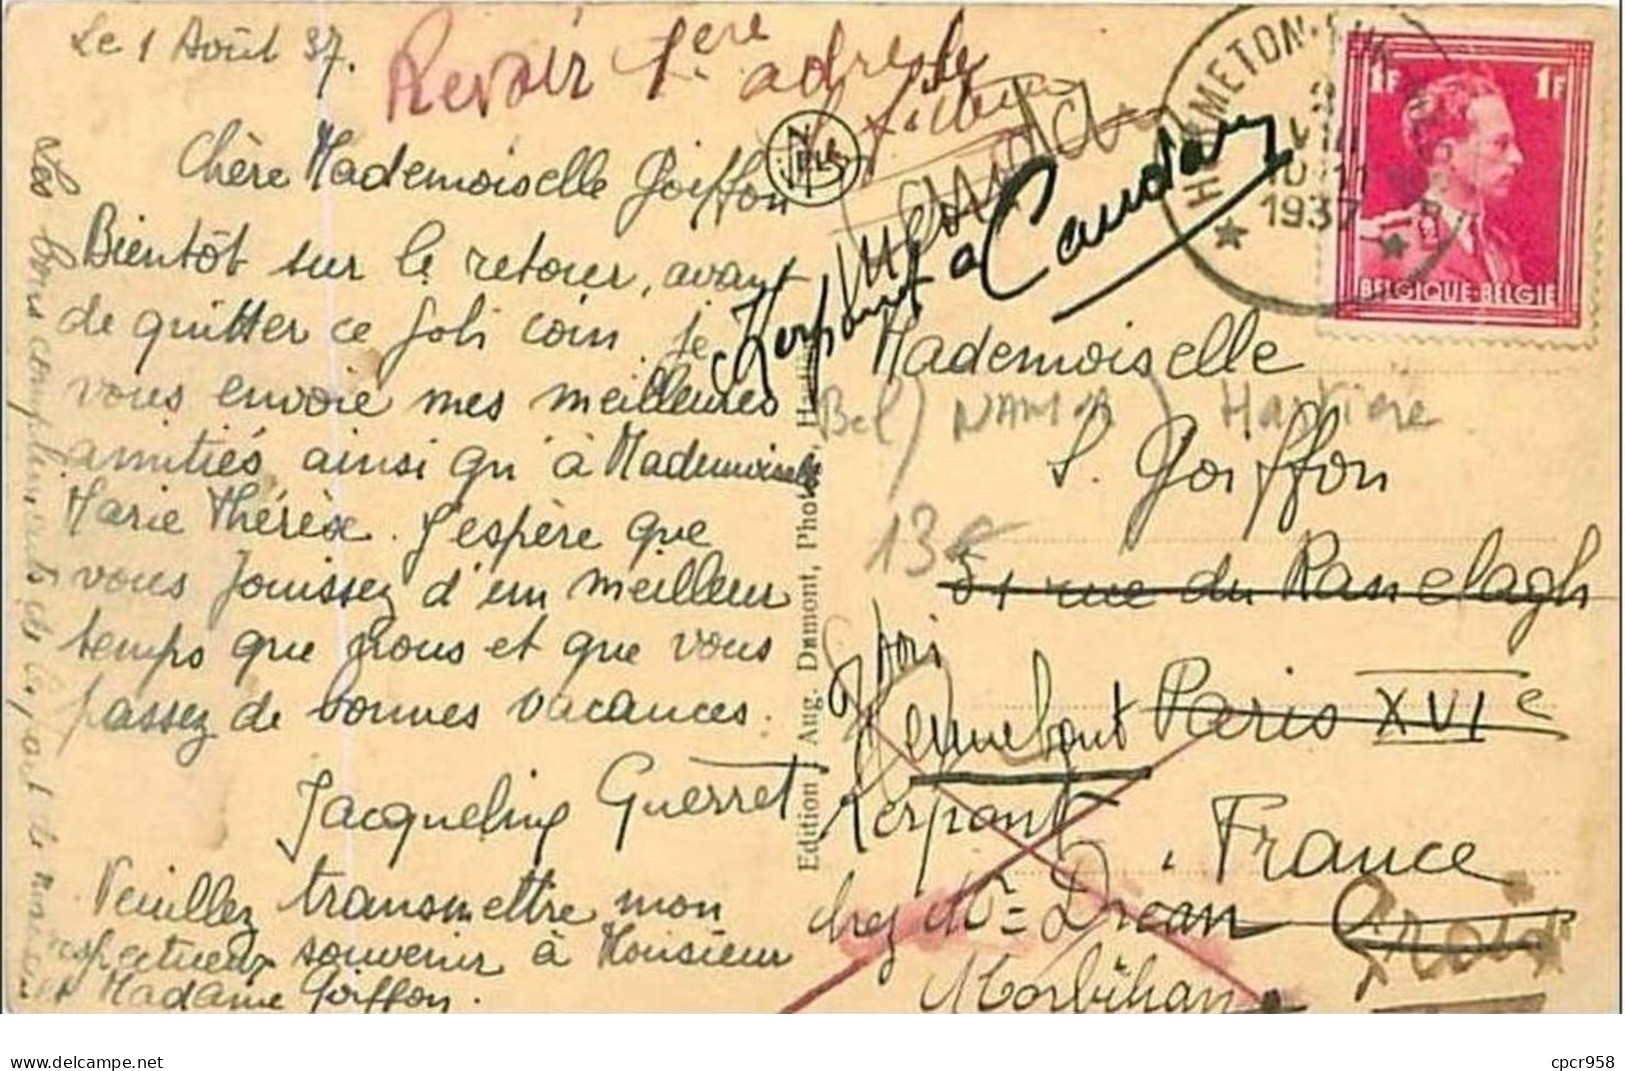 Le 1 Août 37.
Revoir 1ère
adresse
Chère Mademoiselle Goiffon
Bientôt sur le retour, avant
de quitter ce joli coin. je
vous envoie mes meilleures
amitiés ainsi qu'à Mademoiselle
Marie Thérèse. J'espère que
vous jouissez d'un meilleur
temps que nous et que vous
passez de bonnes vacances.
Jacqueline Guerret
Veuillez transmettre mon
respectueux souvenir à Monsieur
et Madame Goiffon.
Les bons compliments de la part de
NELS
Edition Aug. Dumont, Photo
1F 1F
BELGIQUE-BELGIË
1937
Kerpont à Caudan
Mademoiselle
Bel) NAMUR) Hastière
S. Goiffon
13€
51 rue du Ranelagh
Paris XVIe
Hennebont
Kerpont
France
chez Mr Dréan Groix
Morbihan
delcampe.net
cpcr958